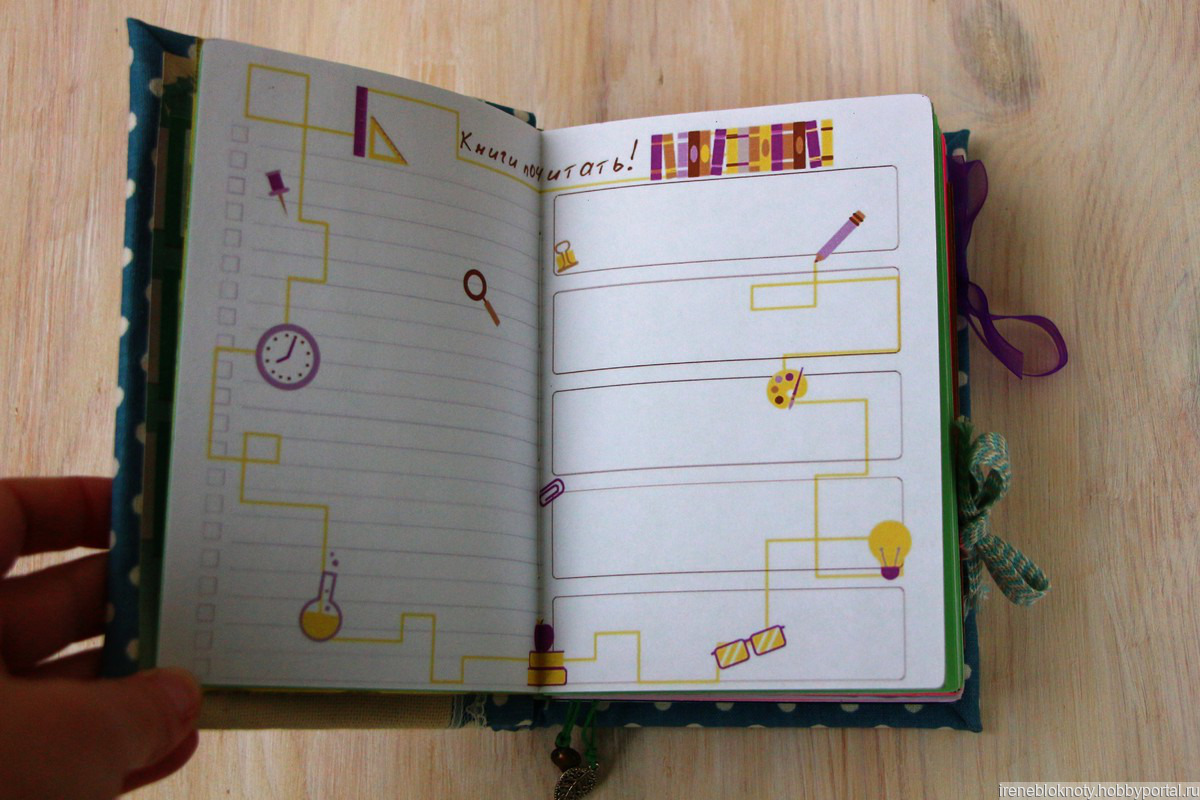 Книги почитать!
irenebloknoty.hobbyportal.ru